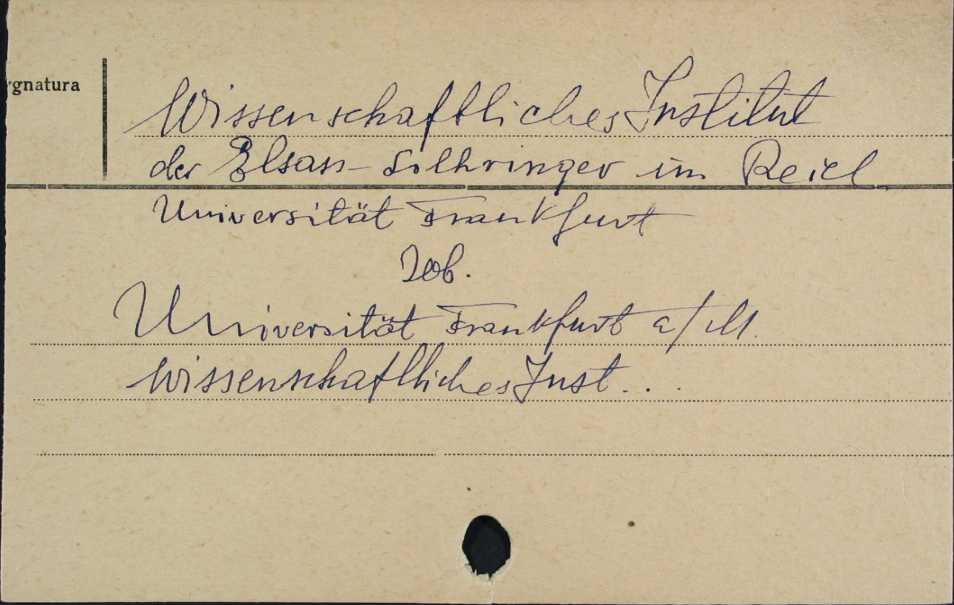 ygnatura
Wissenschaftliches Institut
der Elsass-Lothringer im Reich
Universität Frankfurt
Zob.
Universität Frankfurt a/M.
Wissenschaftliches Inst...